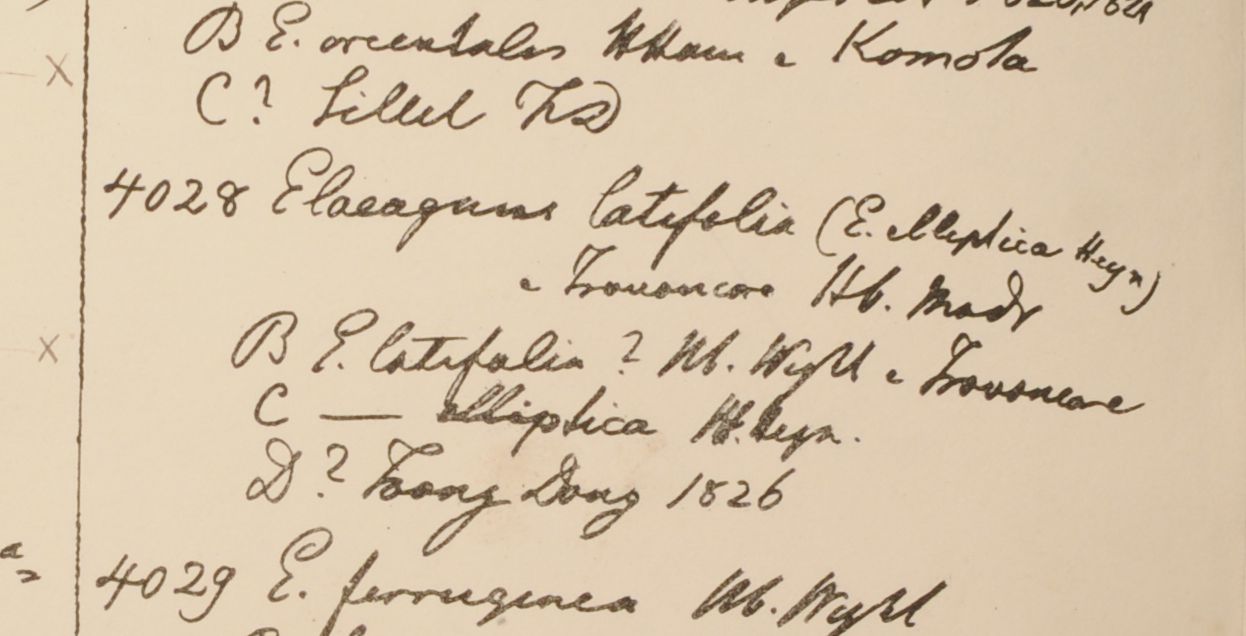 1821
B E. orientalis HHam e Kamola
C? Sillet FD
4028 Elaeagnus latifolia (E. elliptica Heyn)
e Travancore Hb. Madr
B E. latifolia? Hb. Wight e Travancore
C — elliptica H. Heyn.
D? Taong Dong 1826
4029 E. ferruginea Hb. Wight